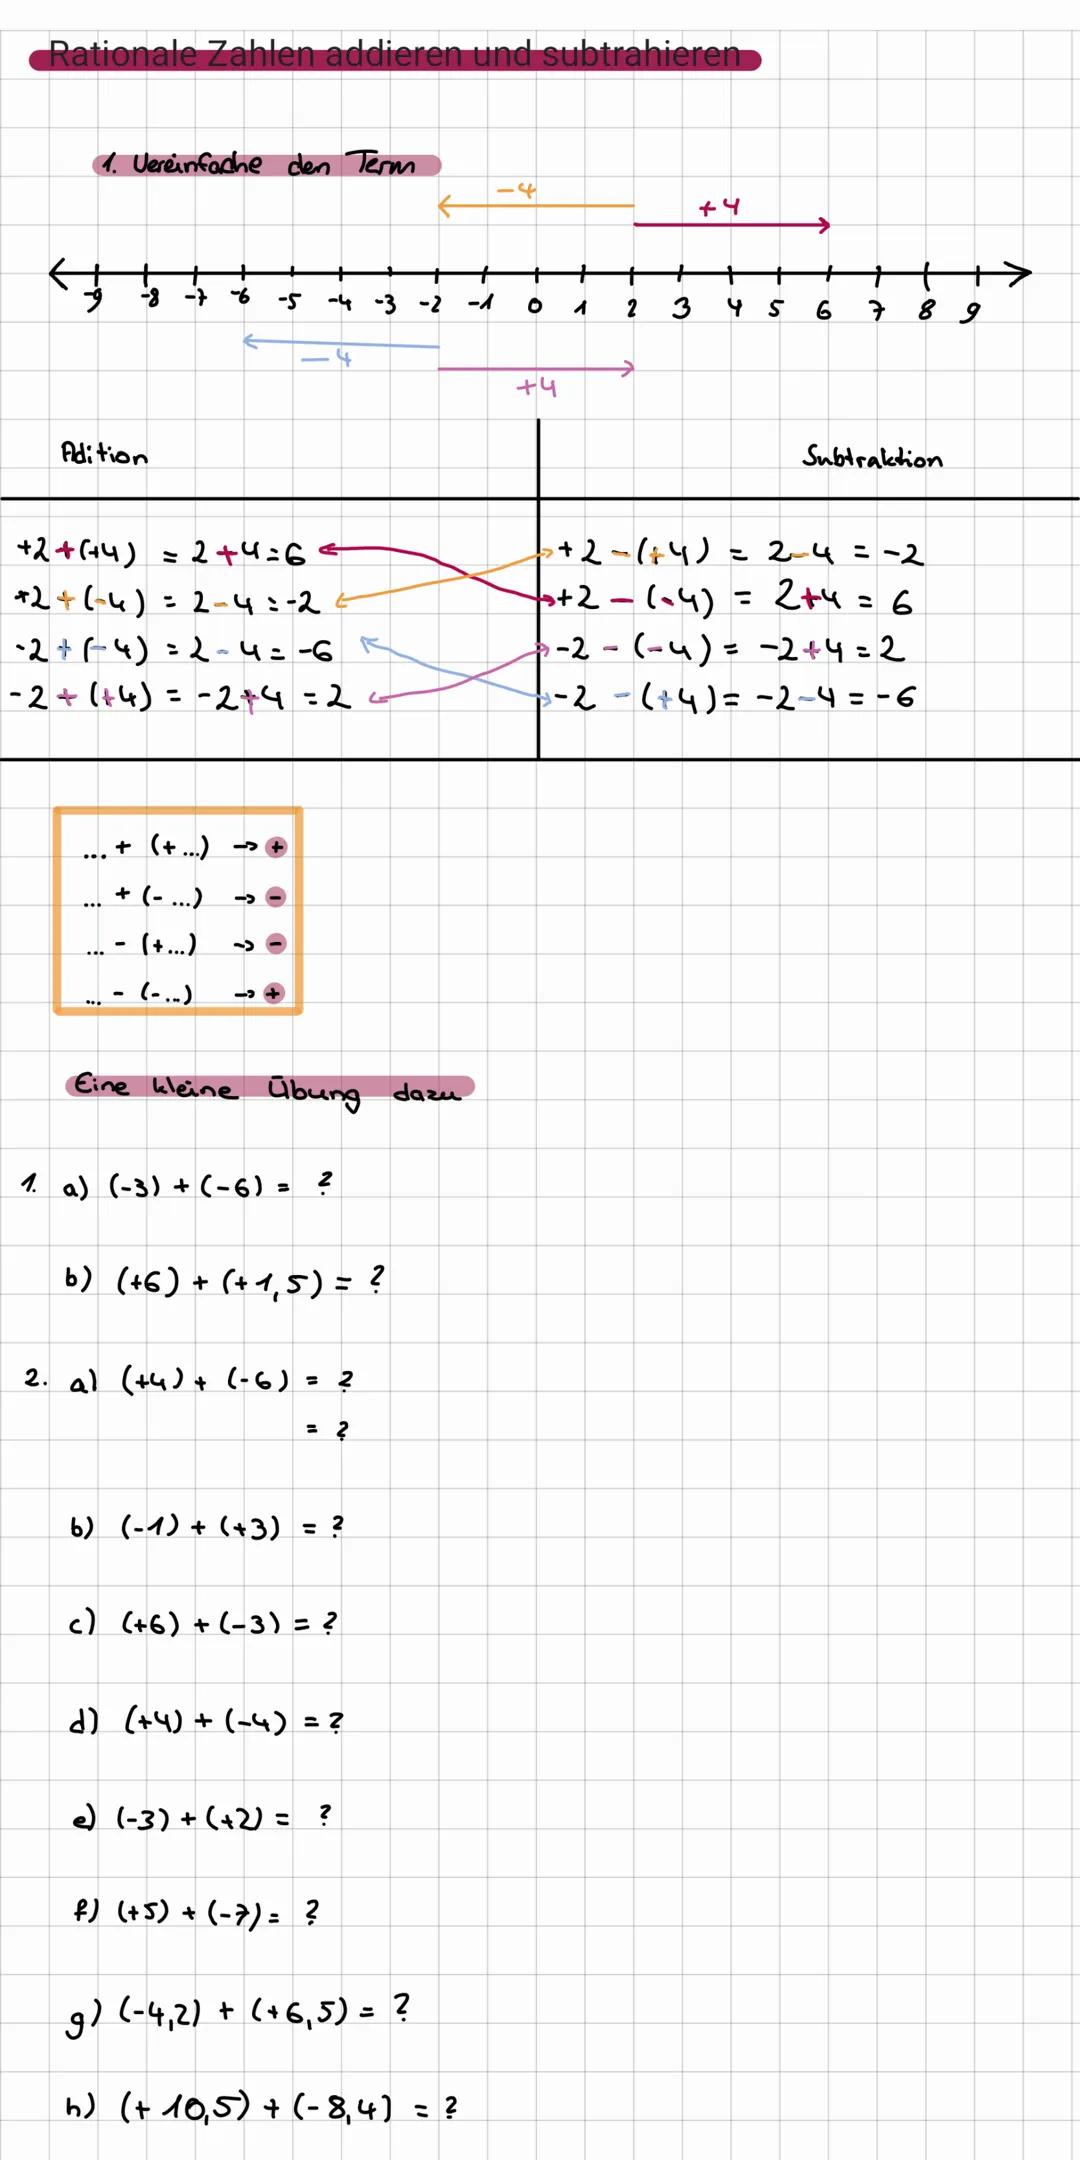 Rationale Zahlen addieren und subtrahieren
1. Vereinfache den Term
-4
+4
-9 -8 -7 -6 -5 -4 -3 -2 -1 0 1 2 3 4 5 6 7 8 9
-4
+4
Adition Subtraktion
+2+(+4) = 2+4=6 +2-(+4) = 2-4 = -2
+2+(-4) = 2-4=-2 +2-(-4) = 2+4 = 6
-2+(-4) = 2-4= -6 -2-(-4) = -2+4=2
-2+(+4) = -2+4 =2 -2 -(+4)= -2-4 = -6
... + (+...) -> +
... + (- ...) -> -
... - (+...) -> -
... - (-...) -> +
Eine kleine Übung dazu
1. a) (-3) + (-6) = ?
b) (+6) + (+1,5) = ?
2. a) (+4) + (-6) = ?
= ?
b) (-1) + (+3) = ?
c) (+6) + (-3) = ?
d) (+4) + (-4) = ?
e) (-3) + (+2) = ?
f) (+5) + (-7) = ?
g) (-4,2) + (+6,5) = ?
h) (+ 10,5) + (- 8,4) = ?